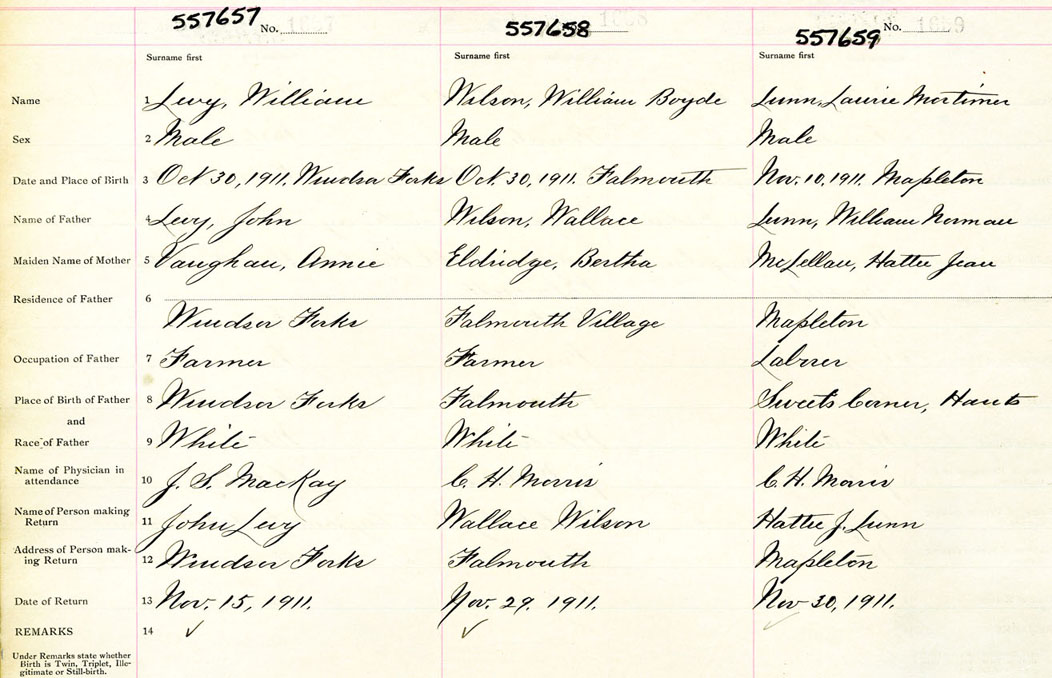 557657 No. 557658 557659 No. 1659
Surname first Surname first Surname first
Name 1 Levy, William Wilson, William Boyde Lunn, Laurie Mortimer
Sex 2 Male Male Male
Date and Place of Birth 3 Oct 30, 1911. Windsor Forks Oct. 30, 1911. Falmouth Nov. 10, 1911. Mapleton
Name of Father 4 Levy, John Wilson, Wallace Lunn, William Norman
Maiden Name of Mother 5 Vaughan, Annie Eldridge, Bertha McLellan, Hattie Jean
Residence of Father 6
Windsor Forks Falmouth Village Mapleton
Occupation of Father 7 Farmer Farmer Laborer
Place of Birth of Father 8 Windsor Forks Falmouth Sweets Corner, Hants
and
Race of Father 9 White White White
Name of Physician in
attendance 10 J. S. MacKay C. H. Morris C. H. Morris
Name of Person making
Return 11 John Levy Wallace Wilson Hattie J. Lunn
Address of Person mak-
ing Return 12 Windsor Forks Falmouth Mapleton
Date of Return 13 Nov. 15, 1911. Nov. 29. 1911. Nov 30, 1911.
REMARKS 14 ✓ ✓ ✓
Under Remarks state whether
Birth is Twin, Triplet, Ille-
gitimate or Still-birth.